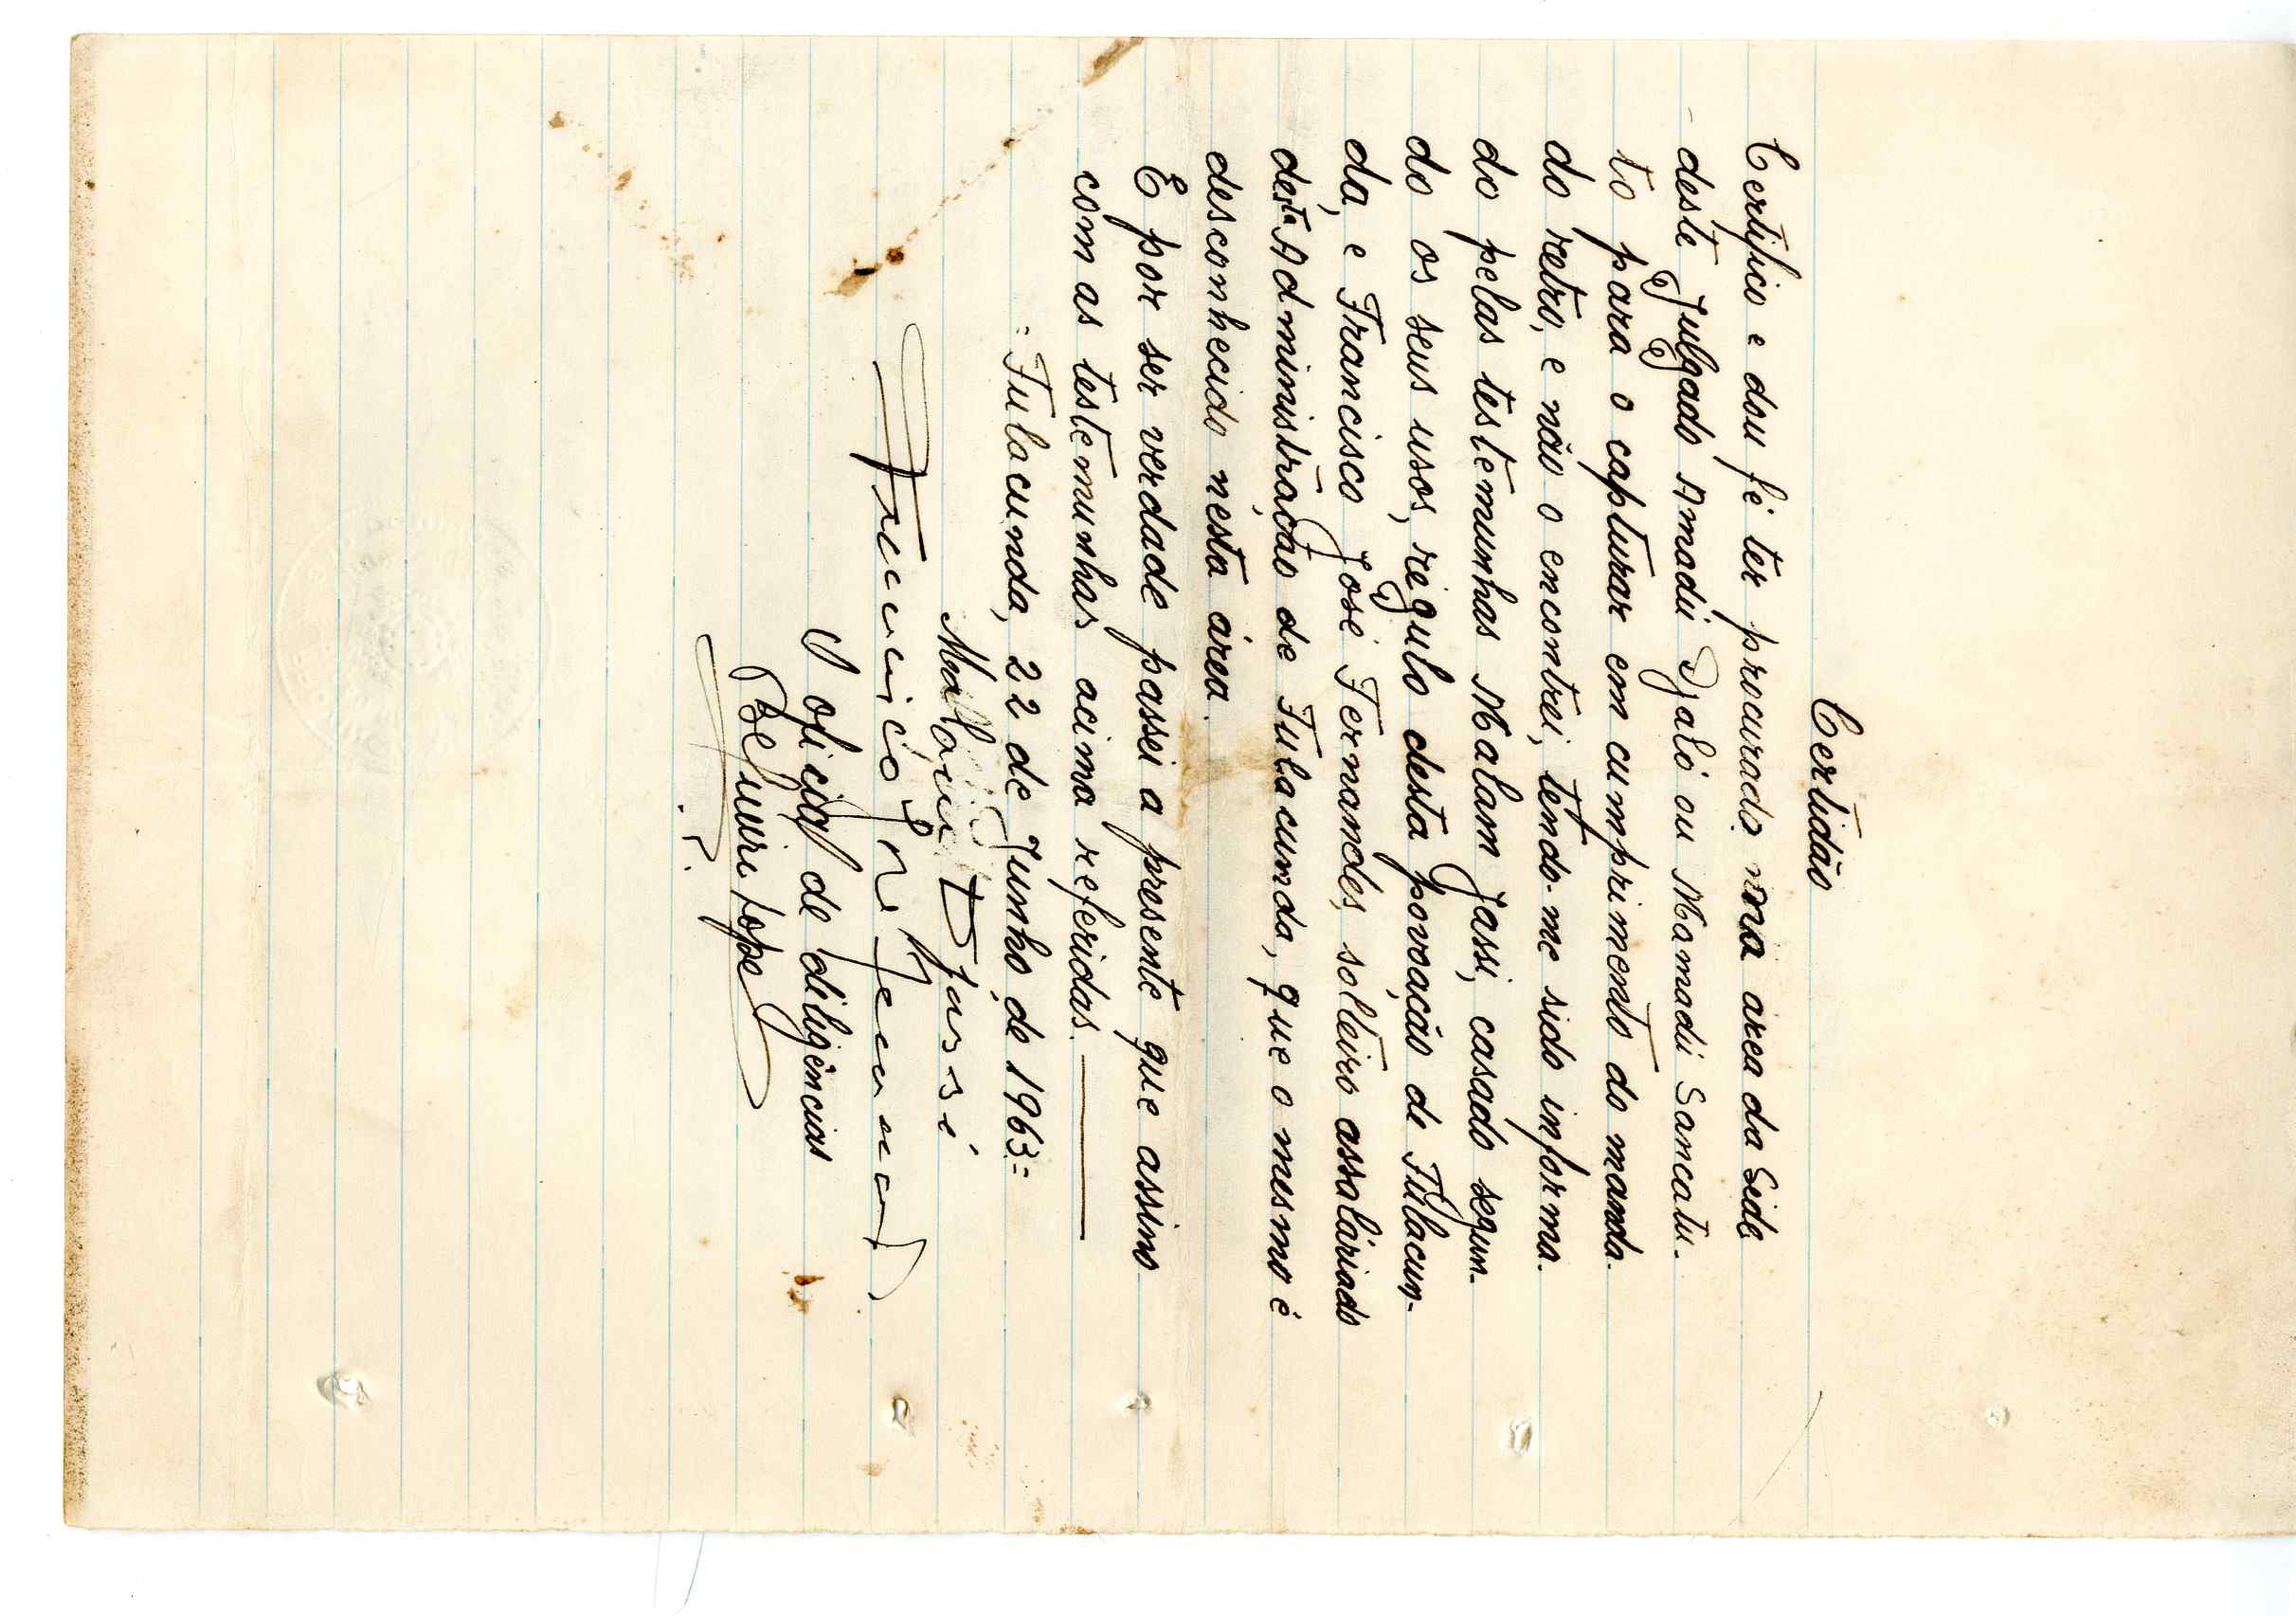 Certidão
Certifico e dou fé ter procurado na area da Sede
deste Julgado Amadú Djaló ou Mamadú Sancatu-
to para o capturar em cumprimento do manda-
do retro, e não o encontrei, tendo-me sido informa-
do pelas testemunhas Malam Jassi, casado segun-
do os seus usos, régulo desta povoação de Fulacun-
da, e Francisco José Fernandes, solteiro assalariado
desta Administração de Fulacunda, que o mesmo é
desconhecido nesta área.
E por ser verdade passei a presente que assino
com as testemunhas acima referidas.
=Fulacunda, 22 de Junho de 1963=
Djassi
Francisco José Fernand
O oficial de diligências